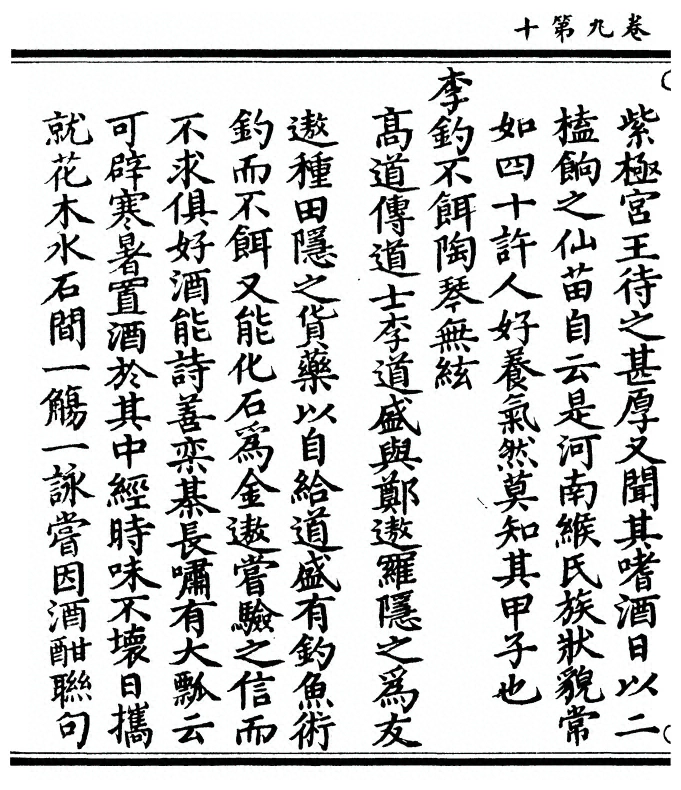 卷九第十
紫極宮王待之甚厚又聞其嗜酒日以二
榼餉之仙苗自云是河南緱氏族狀貌常
如四十許人好養氣然莫知其甲子也
李釣不餌陶琴無絃
高道傳道士李道盛與鄭遨羅隱之為友
遨種田隱之貨藥以自給道盛有釣魚術
釣而不餌又能化石為金遨嘗驗之信而
不求俱好酒能詩善栾棊長嘯有大瓢云
可辟寒暑置酒於其中經時味不壞日攜
就花木水石間一觴一詠嘗因酒酣聯句